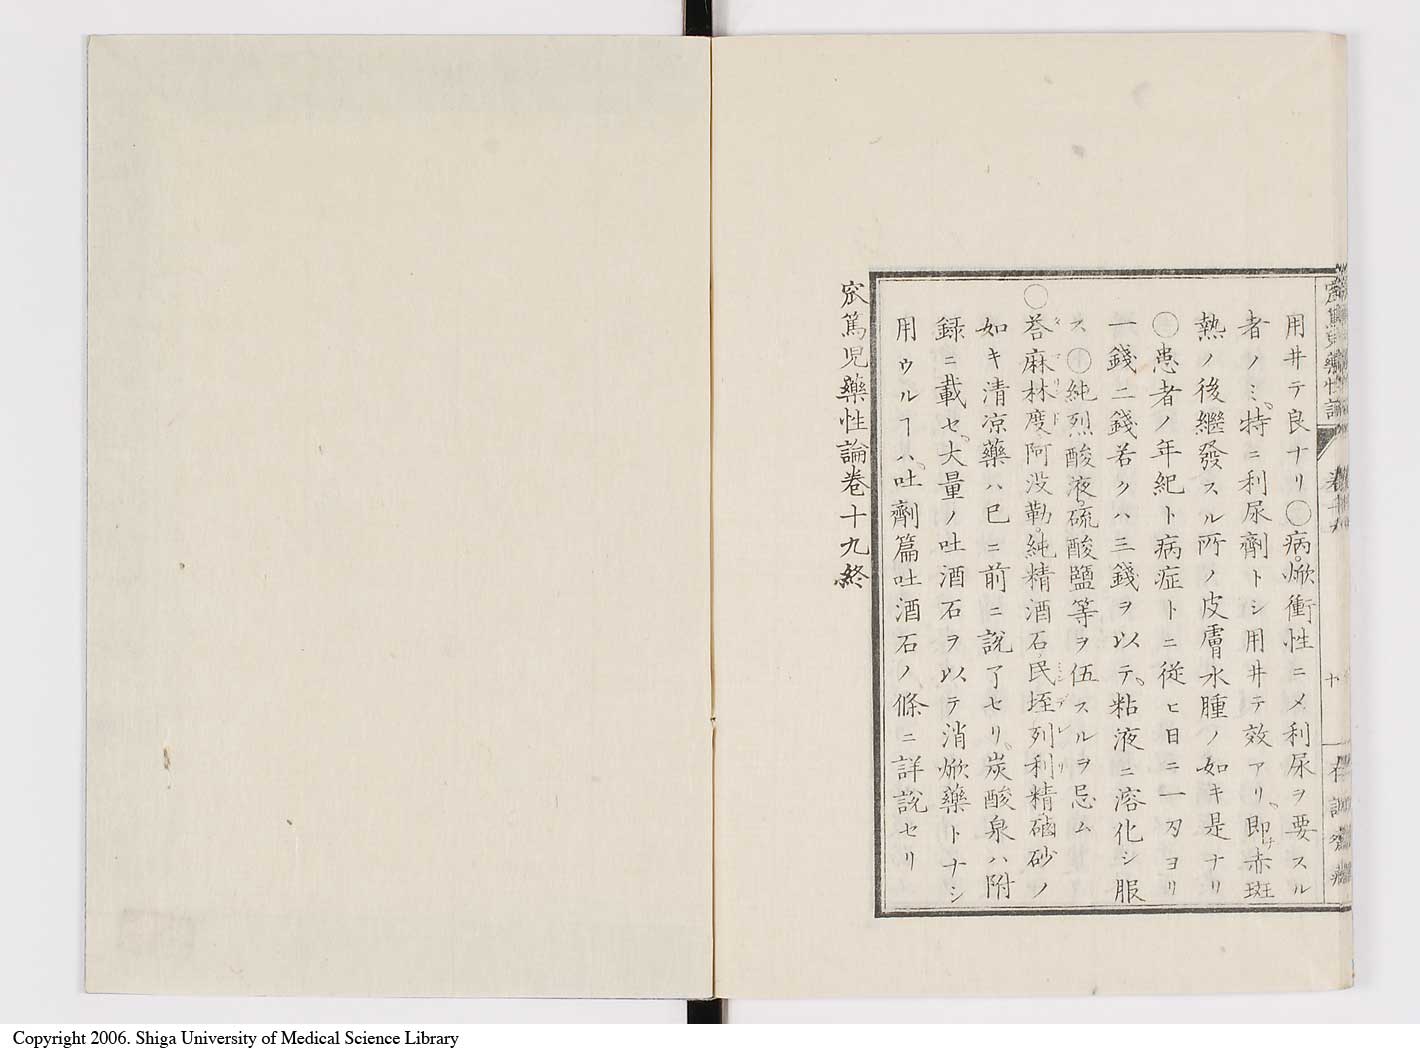 用井テ良ナリ〇病焮衝性ニメ利尿ヲ要スル
者ノミ特ニ利尿劑トシ用井テ效アリ即チ赤斑
熱ノ後繼發スル所ノ皮膚水腫ノ如キ是ナリ
〇患者ノ年紀ト病症トニ従ヒ日ニ一刄ヨリ
一錢二錢若クハ三錢ヲ以テ粘液ニ溶化シ服
ス〇純烈酸液硫酸鹽等ヲ伍スルヲ忌ム
〇荅麻林度阿没勒純精酒石民垤列利精磠砂ノ
如キ清凉藥ハ已ニ前ニ説了セリ炭酸泉ハ附
録ニ載セ大量ノ吐酒石ヲ以テ消焮藥トナシ
用ウルヿハ吐劑篇吐酒石ノ條ニ詳説セリ
窊篤児藥性論卷十九終
Copyright 2006. Shiga University of Medical Science Library